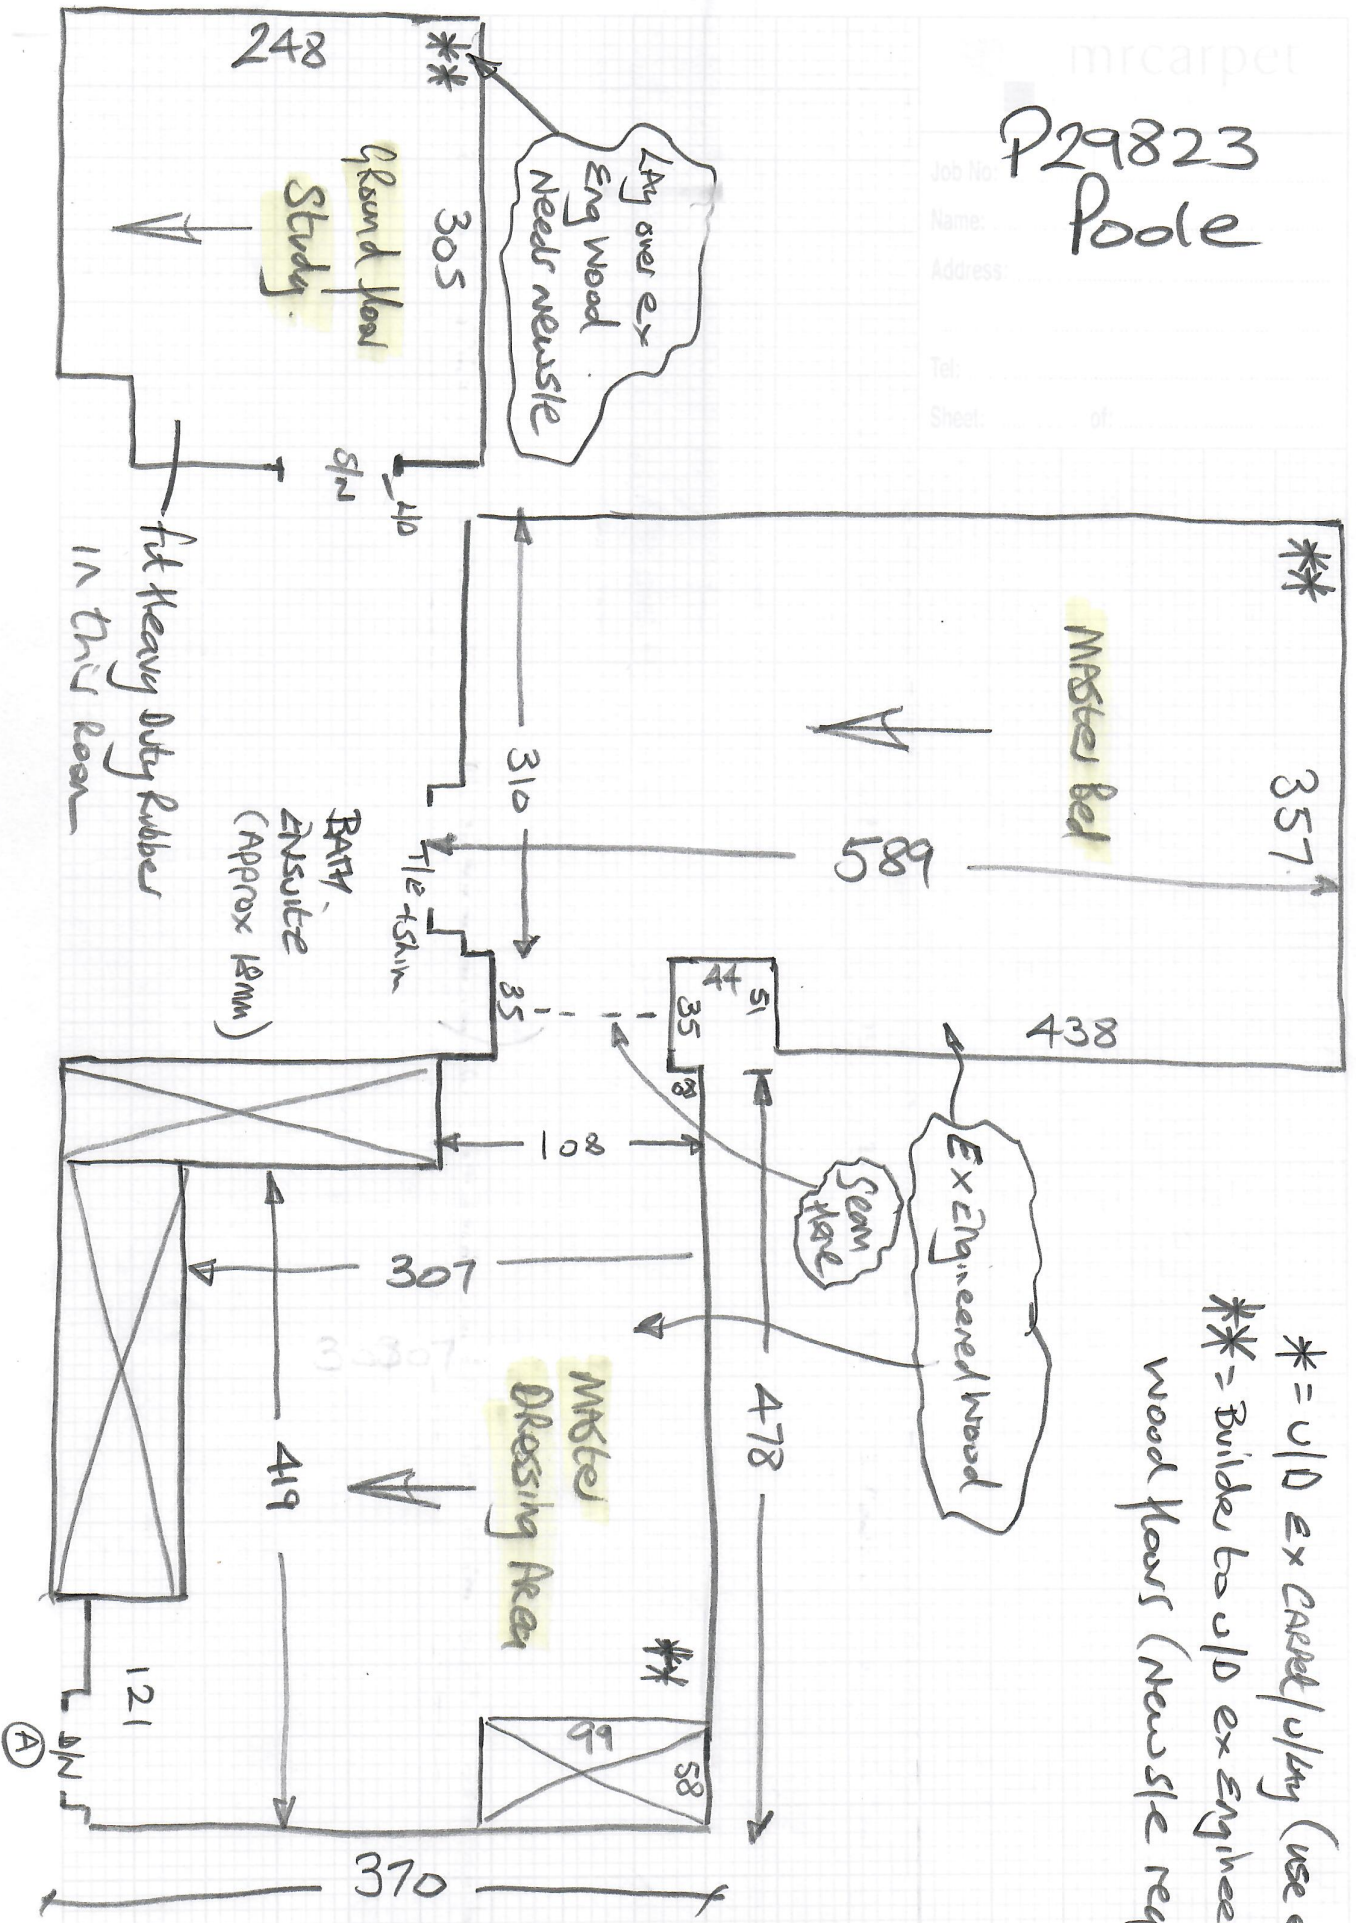 mrcarpet
Job No:
Name:
Address
Tel:
Sheet: of:
P29823
Poole
248
**
305
Ground floor
Study.
Lay over ex
Eng Wood
Needs newsle
S/N
fit Heavy Duty Rubber
in this Room
**
Master Bed
357
589
438
310
T/E + Shim
BATH
ENSUITE
(Approx 18mm)
35
44
51
35
8
Ex Engineered Wood
Seam
Here
108
478
307
419
Master
Dressing Area
**
99
58
121
S/N
A
370
* = U/D ex CARPet/U/Lay (use
** = Builder to U/D ex Enginee
wood floors (Newsle req